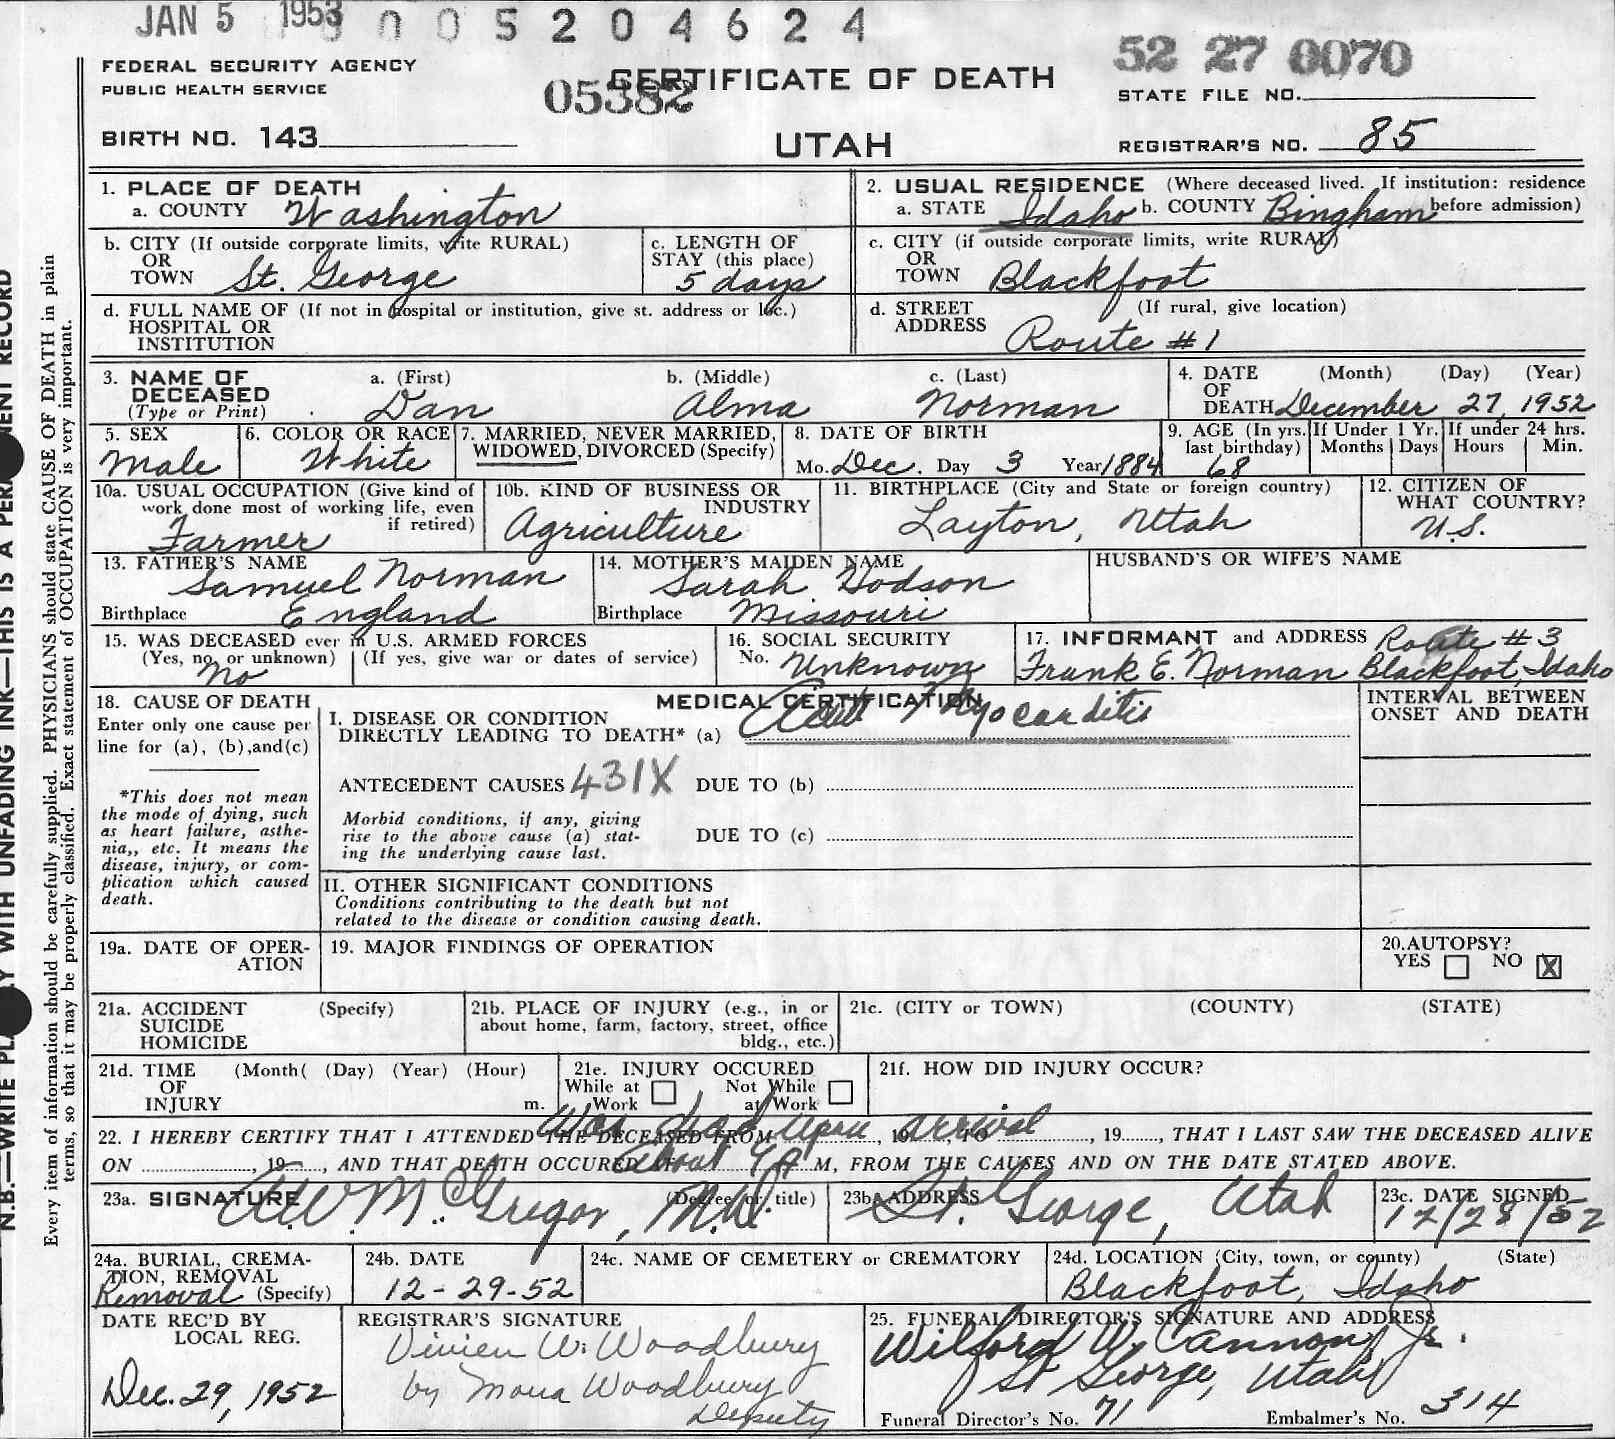 JAN 5 1953 0005204624
FEDERAL SECURITY AGENCY
PUBLIC HEALTH SERVICE
05382
CERTIFICATE OF DEATH
52 27 0070
STATE FILE NO.
BIRTH NO. 143
UTAH
REGISTRAR'S NO. 85
1. PLACE OF DEATH
a. COUNTY Washington
b. CITY (If outside corporate limits, write RURAL)
OR
TOWN St. George
c. LENGTH OF
STAY (this place)
5 days
d. FULL NAME OF (If not in hospital or institution, give st. address or loc.)
HOSPITAL OR
INSTITUTION
2. USUAL RESIDENCE (Where deceased lived. If institution: residence
a. STATE Idaho b. COUNTY Bingham before admission)
c. CITY (if outside corporate limits, write RURAL)
OR
TOWN Blackfoot
d. STREET (If rural, give location)
ADDRESS Route #1
3. NAME OF DECEASED
(Type or Print)
a. (First) b. (Middle) c. (Last)
Dan Alma Norman
4. DATE (Month) (Day) (Year)
OF
DEATH December 27, 1952
5. SEX
Male
6. COLOR OR RACE
White
7. MARRIED, NEVER MARRIED,
WIDOWED, DIVORCED (Specify)
8. DATE OF BIRTH
Mo. Dec. Day 3 Year 1884
9. AGE (In yrs. last birthday)
68
If Under 1 Yr.
Months Days
If under 24 hrs.
Hours Min.
10a. USUAL OCCUPATION (Give kind of
work done most of working life, even
if retired)
Farmer
10b. KIND OF BUSINESS OR
INDUSTRY
Agriculture
11. BIRTHPLACE (City and State or foreign country)
Layton, Utah
12. CITIZEN OF
WHAT COUNTRY?
U.S.
13. FATHER'S NAME
Samuel Norman
Birthplace England
14. MOTHER'S MAIDEN NAME
Sarah Hodson
Birthplace Missouri
HUSBAND'S OR WIFE'S NAME
15. WAS DECEASED ever in U.S. ARMED FORCES
(Yes, no, or unknown) (If yes, give war or dates of service)
No
16. SOCIAL SECURITY
No. Unknown
17. INFORMANT and ADDRESS Route #3
Frank E. Norman Blackfoot, Idaho
18. CAUSE OF DEATH
Enter only one cause per
line for (a), (b), and (c)
*This does not mean
the mode of dying, such
as heart failure, asthe-
nia,, etc. It means the
disease, injury, or com-
plication which caused
death.
MEDICAL CERTIFICATION
I. DISEASE OR CONDITION
DIRECTLY LEADING TO DEATH* (a) Acute Myocarditis
ANTECEDENT CAUSES 431X DUE TO (b)
Morbid conditions, if any, giving
rise to the above cause (a) stat-
ing the underlying cause last.
DUE TO (c)
II. OTHER SIGNIFICANT CONDITIONS
Conditions contributing to the death but not
related to the disease or condition causing death.
INTERVAL BETWEEN
ONSET AND DEATH
19a. DATE OF OPER-
ATION
19. MAJOR FINDINGS OF OPERATION
20. AUTOPSY?
YES NO X
21a. ACCIDENT (Specify)
SUICIDE
HOMICIDE
21b. PLACE OF INJURY (e.g., in or
about home, farm, factory, street, office
bldg., etc.)
21c. (CITY or TOWN) (COUNTY) (STATE)
21d. TIME (Month( (Day) (Year) (Hour)
OF
INJURY m.
21e. INJURY OCCURED
While at Work Not While at Work
21f. HOW DID INJURY OCCUR?
Was dead upon arrival
22. I HEREBY CERTIFY THAT I ATTENDED THE DECEASED FROM, 19 TO, 19, THAT I LAST SAW THE DECEASED ALIVE
ON, 19, AND THAT DEATH OCCURED AT About 9 A M, FROM THE CAUSES AND ON THE DATE STATED ABOVE.
23a. SIGNATURE (Degree or title)
A.W. McGregor, M.D.
23b. ADDRESS
St. George, Utah
23c. DATE SIGNED
12/28/52
24a. BURIAL, CREMA-
TION, REMOVAL
Removal (Specify)
24b. DATE
12-29-52
24c. NAME OF CEMETERY or CREMATORY
24d. LOCATION (City, town, or county) (State)
Blackfoot, Idaho
DATE REC'D BY
LOCAL REG.
Dec. 29, 1952
REGISTRAR'S SIGNATURE
Vivien W. Woodbury
by Mona Woodbury
Deputy
25. FUNERAL DIRECTOR'S SIGNATURE AND ADDRESS
Wilford W. Cannon, Jr.
St George, Utah
Funeral Director's No. 71 Embalmer's No. 314
Every item of information should be carefully supplied. PHYSICIANS should state CAUSE OF DEATH in plain
terms, so that it may be properly classified. Exact statement of OCCUPATION is very important.
N.B.—WRITE PLA Y WITH UNFADING INK—THIS IS A PERMA ENT RECORD